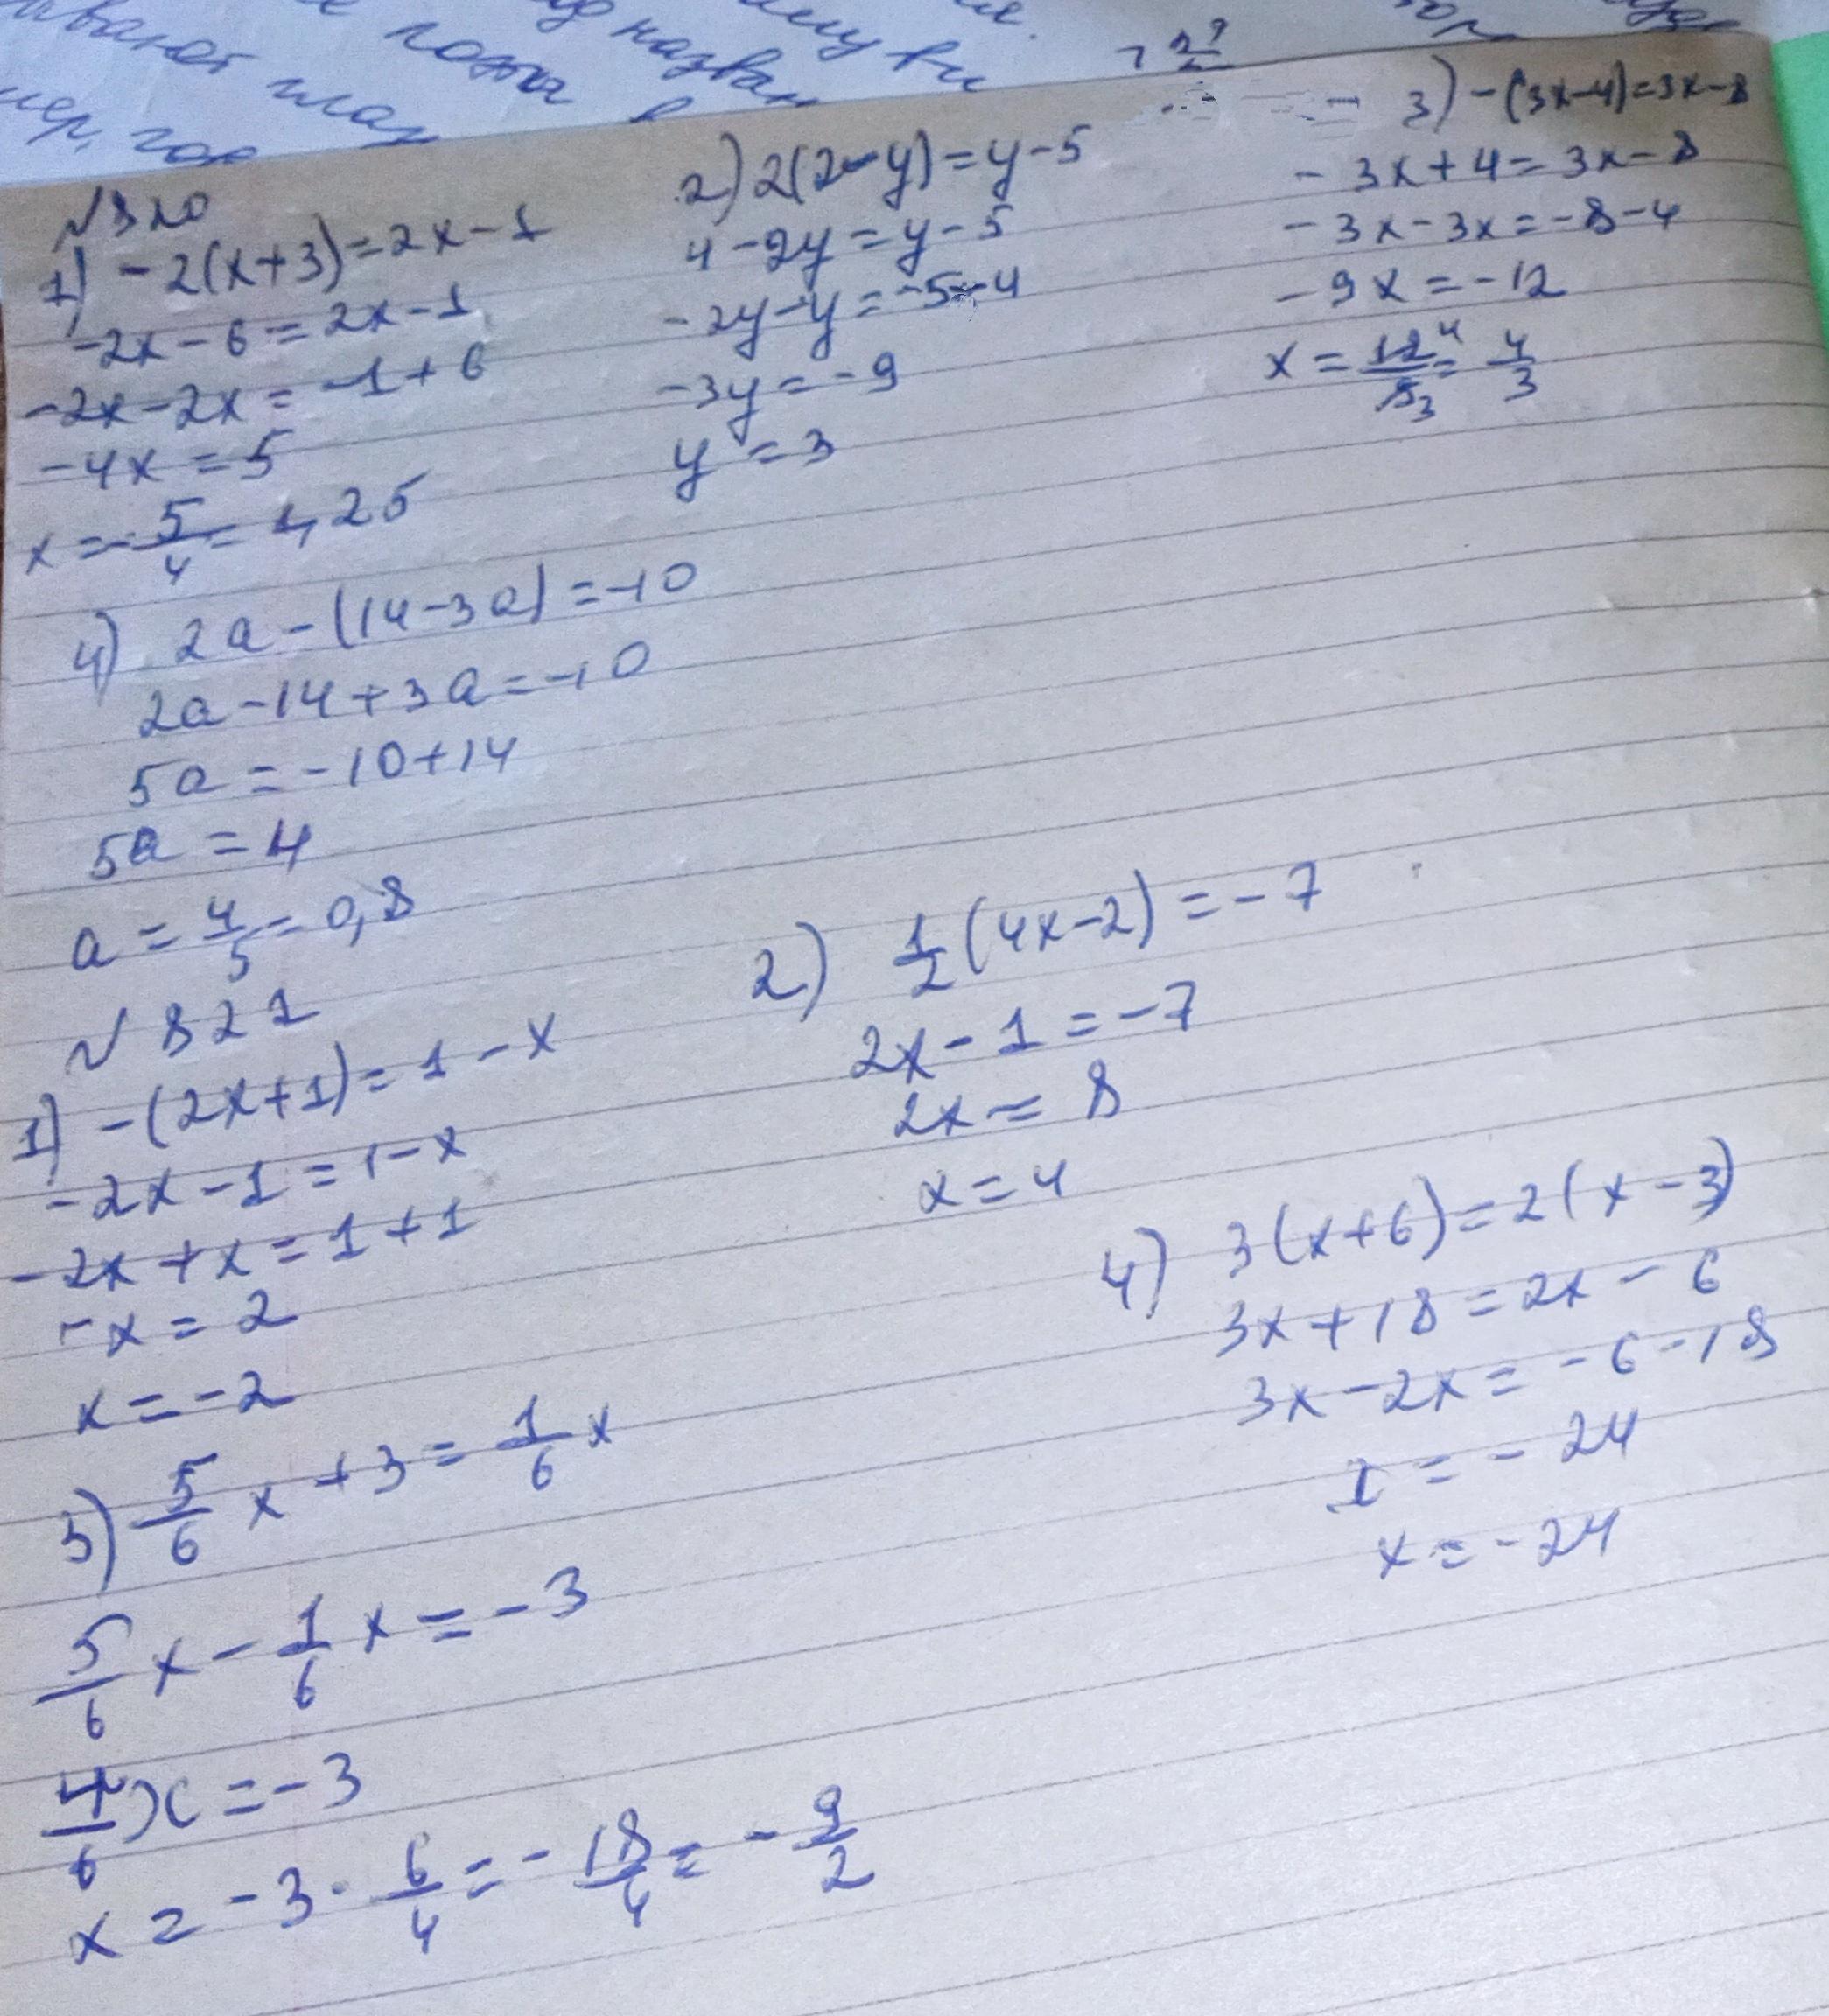 №320
1) -2(x+3)=2x-1
-2x-6=2x-1
-2x-2x=-1+6
-4x=5
x=-5/4=1,25
2) 2(2-y)=y-5
4-2y=y-5
-2y-y=-5-4
-3y=-9
y=3
3) -(3x-4)=3x-8
-3x+4=3x-8
-3x-3x=-8-4
-9x=-12
x=12/9=4/3
4) 2a-(14-3a)=-10
2a-14+3a=-10
5a=-10+14
5a=4
a=4/5=0,8
№821
1) -(2x+1)=1-x
-2x-1=1-x
-2x+x=1+1
-x=2
x=-2
2) 1/2(4x-2)=-7
2x-1=-7
2x=8
x=4
3) 5/6x+3=1/6x
5/6x-1/6x=-3
4/6x=-3
x=-3·6/4=-18/4=-9/2
4) 3(x+6)=2(x-3)
3x+18=2x-6
3x-2x=-6-18
1=-24
x=-24